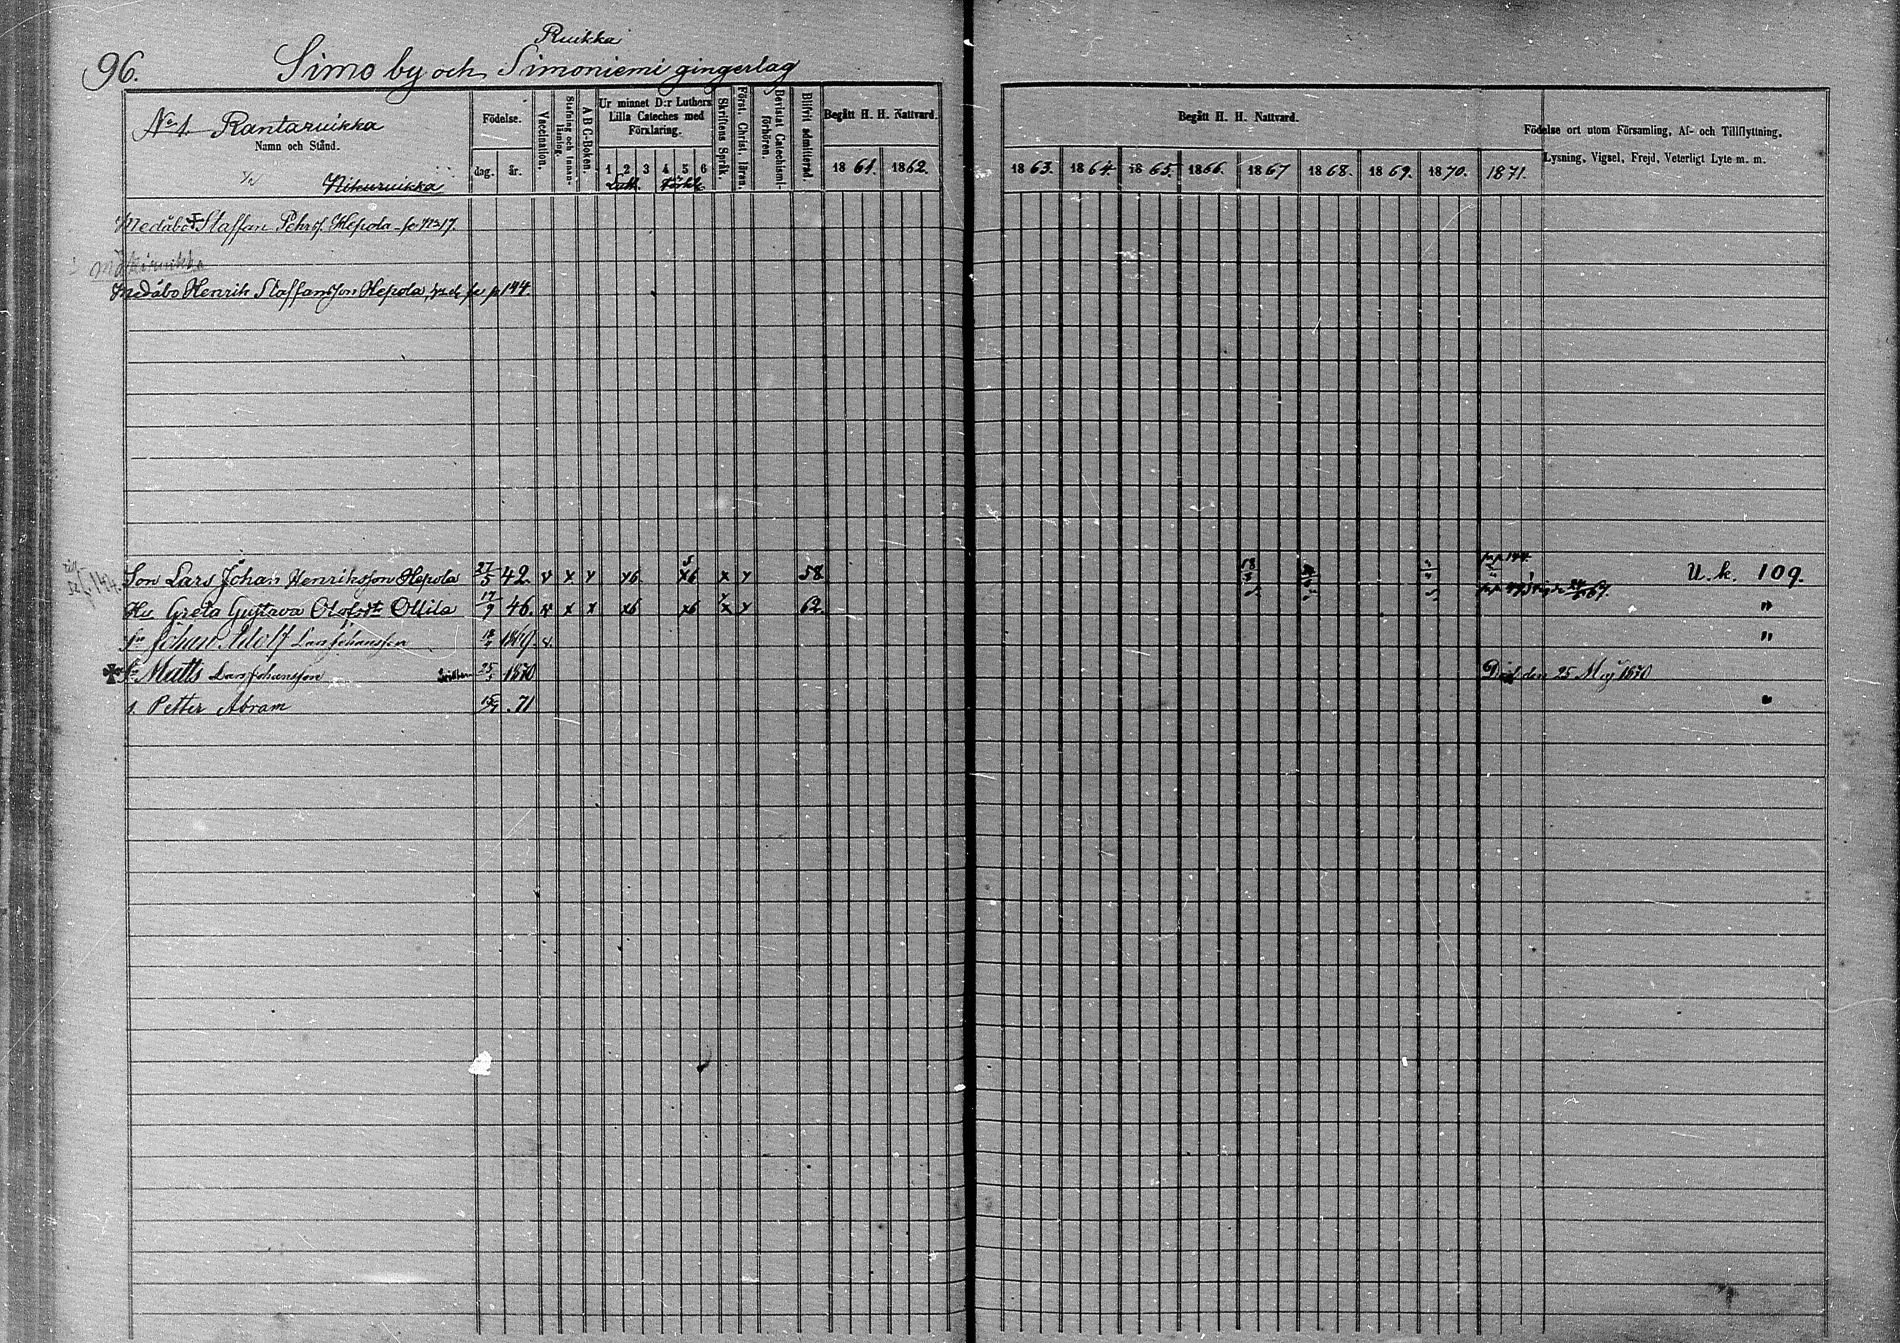 96.
Ruikka
Simo by och Simoniemi gingerlag
No 1. Rantaruikka
Namn och Stånd.
Födelse.
dag. år.
Vaccination.
Stafning och Innanläsning.
A B C-Boken.
Ur minnet D:r Luthers Lilla Cateches med Förklaring.
1 2 3 4 5 6
Skriftens Språk.
Först. Christ. läran.
Bevistat Catechismiförhören.
Blifvit admitterad.
Begått H. H. Nattvard.
1861. 1862.
Begått H. H. Nattvard.
1863. 1864 1865. 1866. 1867 1868. 1869. 1870. 1871.
Födelse ort utom Församling, Af- och Tillflyttning,
Lysning, Vigsel, Frejd, Veterligt Lyte m. m.
Nikuruikka
Medåbo Staffan Pehrs. Hepola
Medåbo Henrik Staffansson Hepola, p 144.
144.
Son Lars Johan Henriksson Hepola 27/5 42. v x x x6 5 x6 x x 58. U. k. 109.
Hu Greta Gustava Olsdr Ollila 17/9 46. v x x x6 x6 x x 62. "
Johan Adolf Larsjohansson 1869. v. "
Matts Larsjohansson 25/ 1870 Död den 25 Maj 1870
s. Petter Abram .71 "